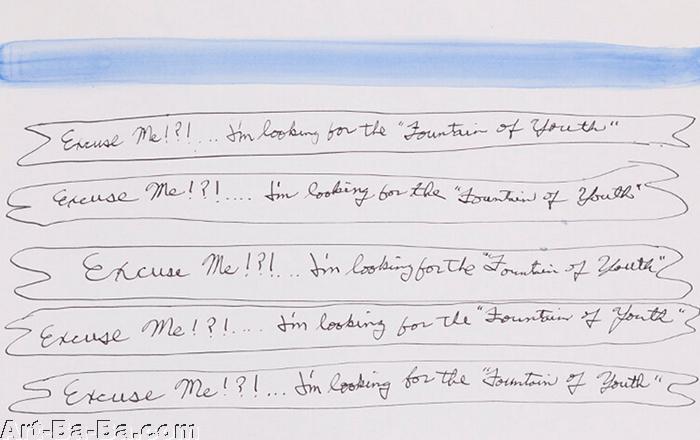 Excuse Me!?!.... I'm looking for the "Fountain of Youth"
Excuse Me!?!.... I'm looking for the "Fountain of Youth"
Excuse Me!?!.... I'm looking for the "Fountain of Youth"
Excuse Me!?!.... I'm looking for the "Fountain of Youth"
Excuse Me!?!.... I'm looking for the "Fountain of Youth"
Art-Ba-Ba.com